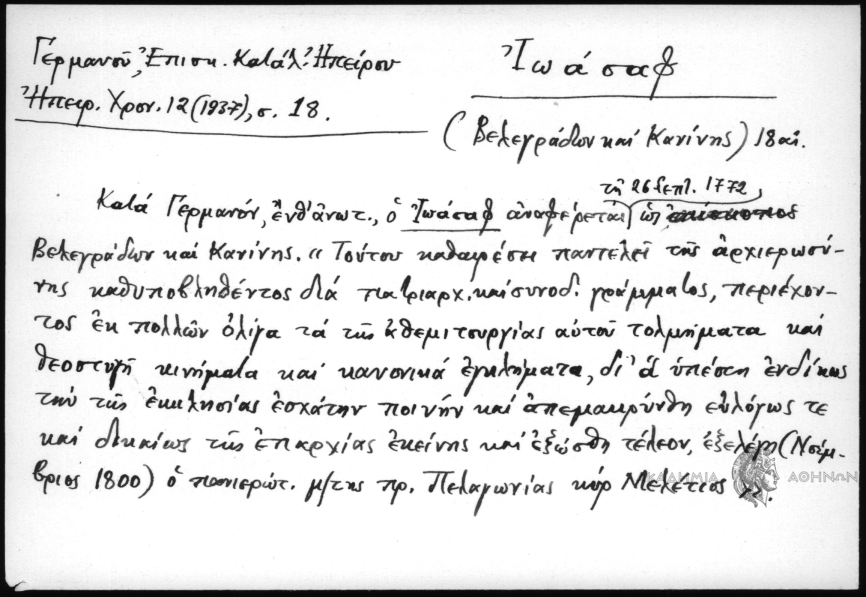 Γερμανοῦ, Ἐπισκ. Κατάλ. Ἠπείρου
Ἠπειρ. Χρον. 12 (1937), σ. 18.
Ἰωάσαφ
(Βελεγράδων καί Κανίνης) 18 αἰ.
τῇ 26 Σεπτ. 1772,
Κατά Γερμανόν, ἔνθ' ἀνωτ., ὁ Ἰωάσαφ ἀναφέρεται ὡς ἐπίσκοπος
Βελεγράδων καί Κανίνης. "Τούτου καθαιρέσει παντελεῖ τῆς ἀρχιερωσύ-
νης καθυποβληθέντος διά πατριαρχ. καί συνοδ. γράμματος, περιέχον-
τος ἐκ πολλῶν ὀλίγα τά τῆς ἀθεμιτουργίας αὐτοῦ τολμήματα καί
θεοστυγῆ κινήματα καί κανονικά ἐγκλήματα, δι' ἅ ὑπέστη ἐνδίκως
τήν τῆς ἐκκλησίας ἐσχάτην ποινήν καί ἀπεμακρύνθη εὐλόγως τε
καί δικαίως τῆς ἐπαρχίας ἐκείνης καί ἐξώσθη τέλεον, ἐξελέγη (Νοέμ-
βριος 1800) ὁ πανιερώτ. μ/της πρ. Πελαγωνίας κύρ Μελέτιος
ΑΚΑΔΗΜΙΑ ΑΘΗΝΩΝ